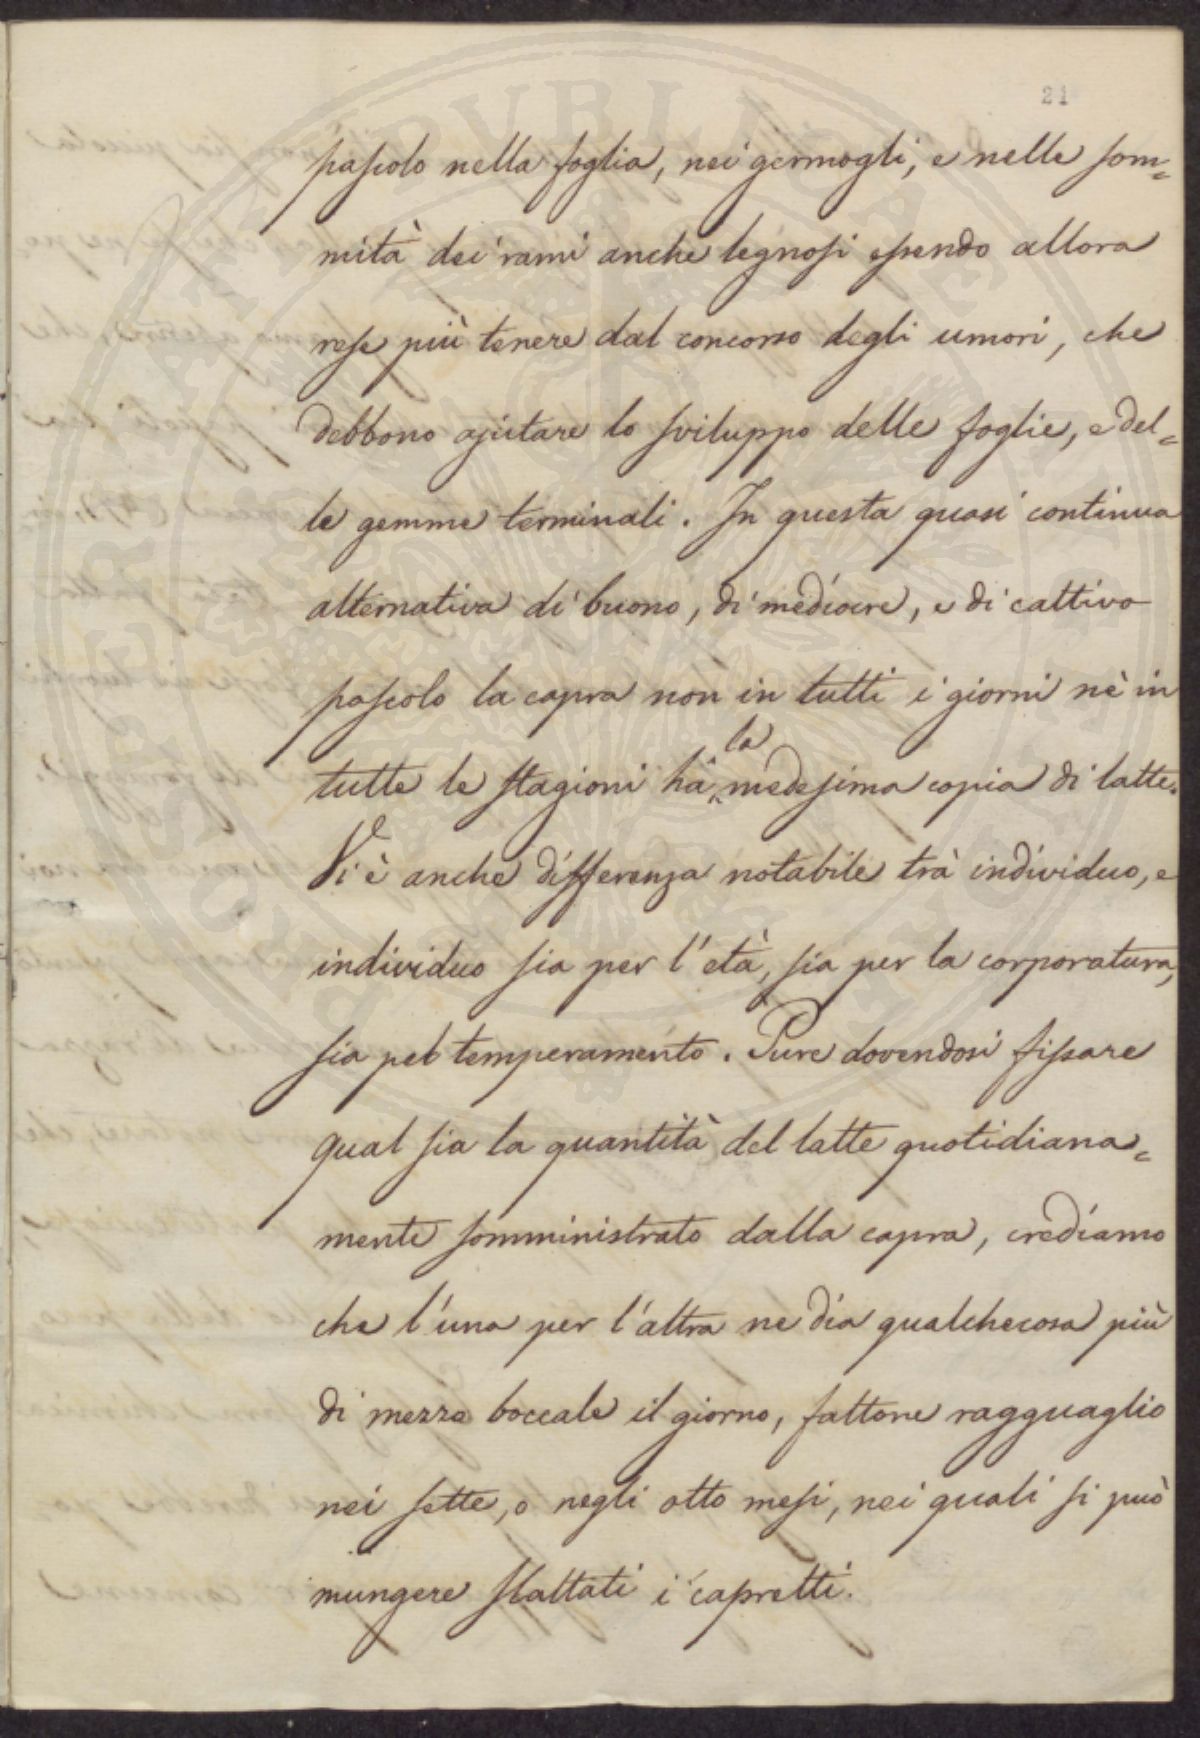 21
pascolo nella foglia, nei germogli, e nelle som=
mità dei rami anche legnosi essendo allora
rese più tenere dal concorso degli umori, che
debbono ajutare lo sviluppo delle foglie, e del=
le gemme terminali. In questa quasi continua
alternativa di buono, di mediocre, e di cattivo
pascolo la capra non in tutti i giorni nè in
la
tutte le stagioni hà medesima copia di latte.
Vi è anche differenza notabile trà individuo, e
individuo sia per l'età, sia per la corporatura,
sia pel temperamento. Pure dovendosi fissare
qual sia la quantità del latte quotidiana=
mente somministrato dalla capra, crediamo
che l'una per l'altra ne dia qualchecosa più
di mezzo boccale il giorno, fattone ragguaglio
nei sette, o negli otto mesi, nei quali si può
mungere slattati i capretti.